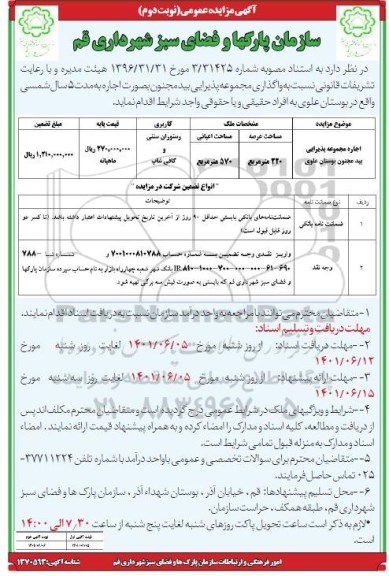 آگهی مزایده عمومی (نوبت دوم)
سازمان پارکها و فضای سبز شهرداری قم
در نظر دارد به استناد مصوبه شماره ۳/۳۱۴۲۵ مورخ ۱۳۹۶/۳۱/۳۱ هیئت مدیره و با رعایت
تشریفات قانونی نسبت به واگذاری مجموعه پذیرایی بید مجنون بصورت اجاره به مدت ۵ سال شمسی
واقع در بوستان علوی به افراد حقیقی و یا حقوقی واجد شرایط اقدام نماید.
موضوع مزایده مشخصات ملک کاربری قیمت پایه مبلغ تضمین
مساحت عرصه مساحت اعیانی
اجاره مجموعه پذیرایی بید مجنون بوستان علوی ۴۲۰ مترمربع ۵۷۰ مترمربع رستوران سنتی و کافی شاپ ۴۷۰،۰۰۰،۰۰۰ ریال ماهیانه ۱،۴۱۰،۰۰۰،۰۰۰ ریال
" انواع تضمین شرکت در مزایده "
ردیف نوع ضمانت نامه توضیحات
۱ ضمانت نامه بانکی ضمانتنامه‌های بانکی بایستی حداقل ۹۰ روز از آخرین تاریخ تحویل پیشنهادات اعتبار داشته باشد. (تا کسر دو
روز قابل قبول است)
۲ وجه نقد واریز نقدی وجه تضمین بسته شماره حساب ۷۰۰۱۰۰۰۸۱۰۷۸۸ و
بانک شهر شعبه چهارراه بازار به نام حساب سپرده سازمان پارکها
و فضای سبز شهرداری قم که بایستی به صورت فیش سه برگی تهیه شود
۱- متقاضیان محترم می‌توانند با مراجعه به واحد درآمد سازمان نسبت به دریافت اسناد اقدام نمایند.
مهلت دریافت و تسلیم اسناد:
۲- -مهلت دریافت اسناد: از روز شنبه مورخ ۱۴۰۱/۰۶/۰۵ لغایت روز شنبه مورخ
۱۴۰۱/۰۶/۱۲
۳- -مهلت ارائه پیشنهاد: از روز شنبه مورخ ۱۴۰۱/۰۶/۰۵ لغایت روز سه شنبه مورخ
۱۴۰۱/۰۶/۱۵
۴- شرایط و ویژگیهای ملک در شرایط عمومی درج گردیده است و متقاضیان محترم مکلف‌اند پس
از دریافت و مطالعه، کلیه اسناد و مدارک را امضاء کرده و به همراه پیشنهاد قیمت ارائه نمایند. امضاء
اسناد و مدارک به منزله قبول تمامی شرایط است.
۵- متقاضیان محترم برای سوالات تخصصی و عمومی با واحد درآمد با شماره تلفن ۳۷۷۱۱۲۲۴-
۰۲۵ تماس حاصل فرمایند.
۶- محل تسلیم پیشنهادها: قم ، خیابان آذر ، بوستان شهداء آذر ، سازمان پارک ها و فضای سبز
شهرداری قم، طبقه همکف ، حراست سازمان
*لازم به ذکر است ساعت تحویل پاکت روزهای شنبه لغایت پنج شنبه از ساعت ۷،۳۰ الی ۱۴:۰۰
است.
امور فرهنگی و ارتباطات سازمان پارک ها و فضای سبز شهرداری قم
شناسه آگهی: ۱۳۷۰۵۱۳